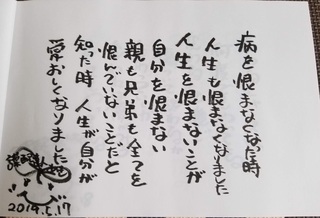 病を恨まなくなった時
人生も恨まなくなりました
人生を恨まないことが
自分を恨まない
親も兄弟も全てを
恨んでいないことだと
知った時 人生が自分が
愛おしくなりました
2019.5.17